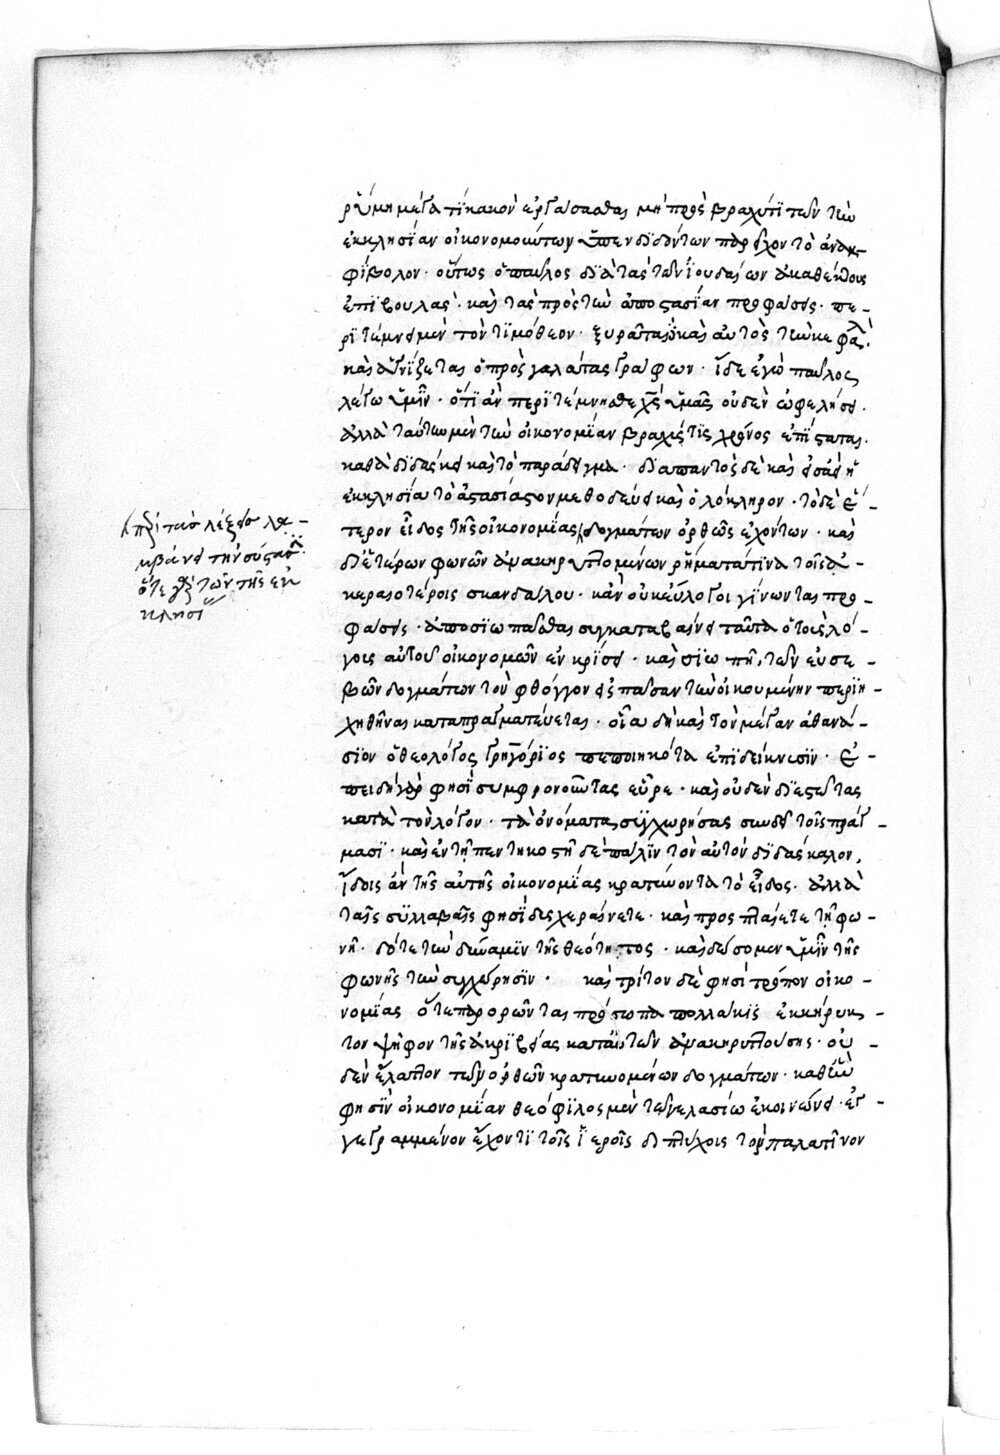 ρύμη μέγα τι κακὸν ἐργάσασθαι μὴ πρὸς βραχύ τι τῶν τὴν
ἐκκλησίαν οἰκονομούντων ὑπενδιδόντων παρεῖχον τὸ ἀναμ-
φίβολον· οὕτως ὁ παῦλος διὰ τὰς τῶν ἰουδαίων ἀκαθέκτους
ἐπιβουλάς· καὶ τὰς πρὸς τὴν ἀποστασίαν προφάσεις· πε-
ριτέμνει μὲν τὸν τιμόθεον· ξυρᾶται δὲ καὶ αὐτὸς τὴν κεφαλ·
καὶ ἁγνίζεται ὁ πρὸς γαλάτας γράφων· ἴδε ἐγὼ παῦλος
λέγω ὑμῖν· ὅτι ἐὰν περιτέμνησθε χς ὑμᾶς οὐδὲν ὠφελήσει·
ἀλλὰ ταύτην μὲν τὴν οἰκονομίαν βραχύς τις χρόνος ἐπίσταται·
καθὰ διδάσκει καὶ τὸ παράδειγμα· διαπαντὸς δὲ καὶ εἰσάει ἡ
ἐκκλησία τὸ ἀστασίαστον μεθοδεύει καὶ ὁλόκληρον· τὸ δὲ ἕ-
τερον εἶδος τῆς οἰκονομίας δογμάτων ὀρθῶς ἐχόντων· καὶ
δι' ἑτέρων φωνῶν ἀνακηρυττομένων ῥήματά τινα τοῖς ἀ-
κεραιοτέροις σκανδάλου· κἂν οὐκ εὔλογοι γίνωνται προ-
φάσεις· ἀποσιωπᾶσθαι συγκαταβαίνει ταῦτα ὁ τοὺς λό-
γους αὐτοῦ οἰκονομῶν ἐν κρίσει· καὶ σιωπῇ, τῶν εὐσε-
βῶν δογμάτων τὸν φθόγγον εἰς πᾶσαν τὴν οἰκουμένην περιη-
χηθῆναι καταπραγματεύεται· οἷα δὴ καὶ τὸν μέγαν ἀθανά-
σιον ὁ θεολόγος γρηγόριος πεποιηκότα ἐπιδείκνυσιν· ἐ-
πειδὴ γάρ φησι συμφρονοῦντας εὗρε· καὶ οὐδὲν διεστῶτας
κατὰ τὸν λόγον· τὰ ὀνόματα συγχωρήσας συνδεῖ τοῖς πράγ-
μασι· καὶ ἐν τῇ πεντηκοστῇ δὲ πάλιν τὸν αὐτὸν διδάσκαλον,
ἴδοις ἂν τῆς αὐτῆς οἰκονομίας κρατύνοντα τὸ εἶδος· ἀλλὰ
ταῖς συλλαβαῖς φησὶ δυσχεραίνετε· καὶ προσπταίετε τῇ φω-
νῇ· δότε τὴν δύναμιν τῆς θεότητος· καὶ δώσομεν ὑμῖν τῆς
φωνῆς τὴν συγχώρησιν· καὶ τρίτον δέ φησι τρόπον οἰκο-
νομίας ὅτε παρορῶνται πρόσωπα πολλάκις ἐκκήρυκ-
τον ψῆφον τῆς ἀκριβείας κατ' αὐτῶν ἀνακηρυττούσης· οὐ-
δὲν ἔλαττον τῶν ὀρθῶν κρατυνομένων δογμάτων· καθ' ἣν
φησὶν οἰκονομίαν θεόφιλος μὲν τῷ γελασίῳ ἐκοινώνει· ἐγ-
γεγραμμένον ἔχοντι τοῖς ἱεροῖς διπτύχοις τὸν παλατῖνον
τὰς λέξεις λα-
μβάνει τὴν σύστασ
ὅτε τῶν τῆς ἐκ
κλησί